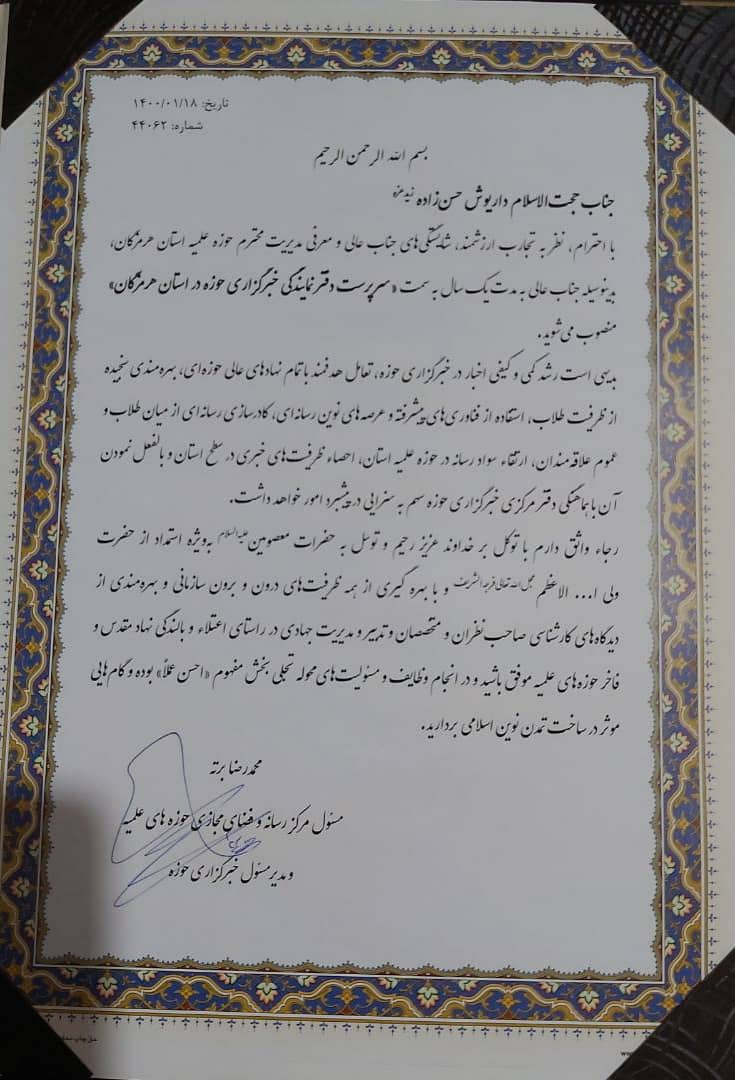 تاریخ: ۱۴۰۰/۰۱/۱۸
شماره: ۴۴۰۶۲
بسم الله الرحمن الرحیم
جناب حجت‌الاسلام داریوش حسن‌زاده زید عزه
با احترام، نظر به تجارب ارزشمند، شایستگی‌های جناب عالی و معرفی مدیریت محترم حوزه علمیه استان هرمزگان،
بدینوسیله جناب عالی به مدت یک سال به سمت «سرپرست دفتر نمایندگی خبرگزاری حوزه در استان هرمزگان»
منصوب می‌شوید.
بدیهی است رشد کمی و کیفی اخبار در خبرگزاری حوزه، تعامل هدفمند با تمام نهادهای عالی حوزه‌ای، بهره‌مندی سنجیده
از ظرفیت طلاب، استفاده از فناوری‌های پیشرفته و عرصه‌های نوین رسانه‌ای، کادرسازی رسانه‌ای از میان طلاب و
عموم علاقه‌مندان، ارتقاء سواد رسانه در حوزه علمیه استان، احصاء ظرفیت‌های خبری در سطح استان و بالفعل نمودن
آن با هماهنگی دفتر مرکزی خبرگزاری حوزه سهم به سزایی در پیشبرد امور خواهد داشت.
رجاء واثق دارم با توکل بر خداوند عزیز رحیم و توسل به حضرات معصومین علیه‌السلام به‌ویژه استمداد از حضرت
ولی ا... الاعظم عجل‌الله‌تعالی‌فرجه‌الشریف و با بهره گیری از همه ظرفیت‌های درون و برون سازمانی و بهره‌مندی از
دیدگاه‌های کارشناسی صاحب‌نظران و متخصصان و تدبیر و مدیریت جهادی در راستای اعتلاء و بالندگی نهاد مقدس و
فاخر حوزه‌های علمیه موفق باشید و در انجام وظایف و مسئولیت‌های محوله تجلی بخش مفهوم «احسن عملاً» بوده و گام‌هایی
موثر در ساخت تمدن نوین اسلامی بردارید.
محمدرضا برته
مسئول مرکز رسانه و فضای مجازی حوزه های علمیه
و مدیر مسئول خبرگزاری حوزه